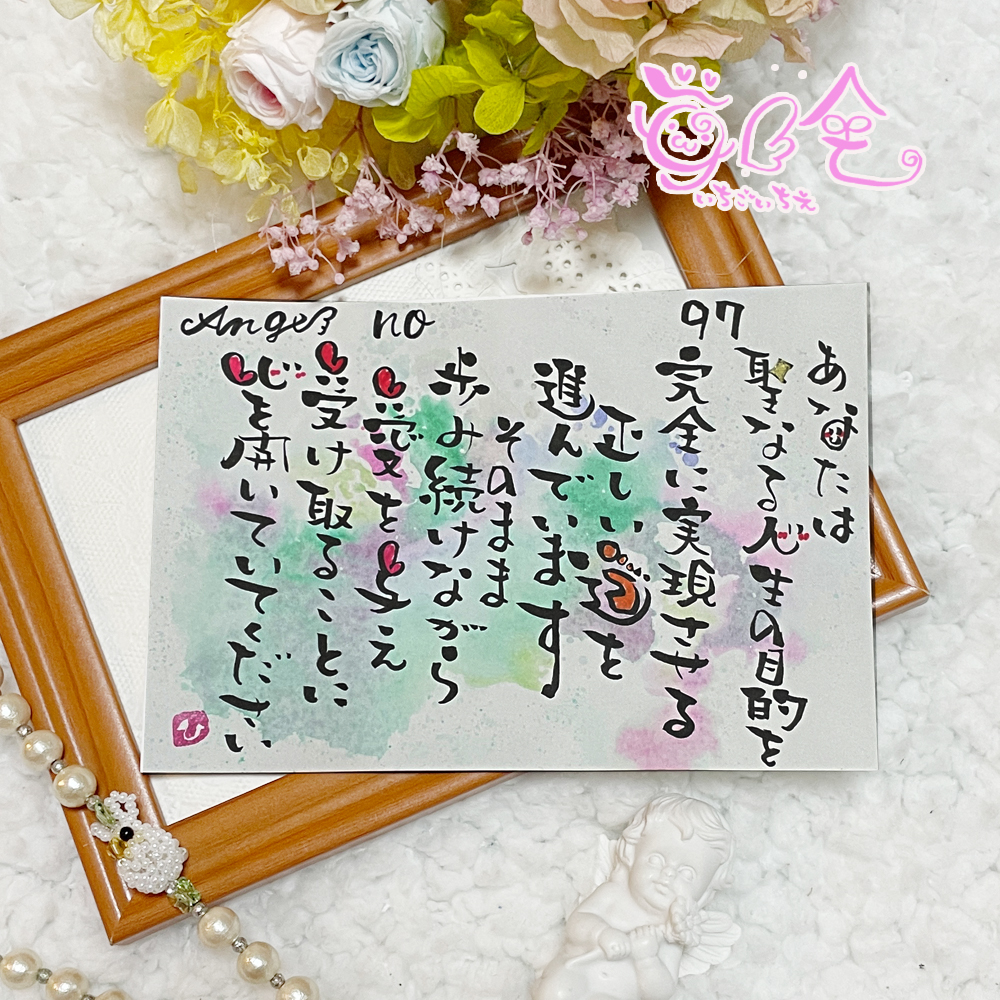 Angel no 97
あなたは
聖なる人生の目的を
完全に実現させる
正しい道を
進んでいます
そのまま
歩み続けながら
愛を与え
受け取ることに
心を開いていてください
いちごいちえ